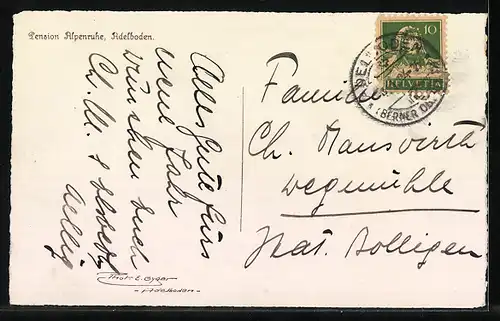 Pension Alpenruhe, Adelboden.
Alles Gute fürs
neue Jahr
wünschen Euch
Ch. M.
Aellig
Phot. E. Gyger
Adelboden
10
HELVETIA
ADELBODEN
(BERNER OB
Familie
Ch. Mauswirth
Wegmühle
Stat. Bolligen